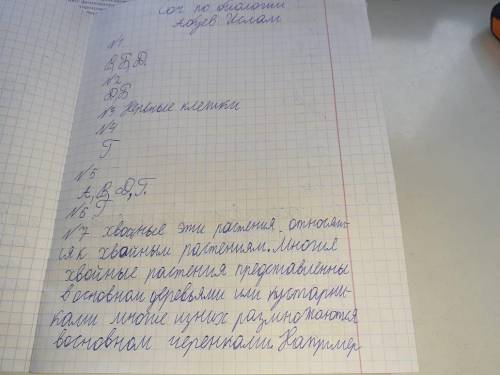 Соч по биологии
Азуев Ислам
№1
В, Б, Д.
№2
Д, В
№3 Нервные клетки
№4
Г
№5
А, В, Д, Г.
№6 Г
№7 Хвойные эти растения относят-
ся к хвойным растениям. Многие
хвойные растения представленны
восновном деревьями или кустарни-
ками многие изних размножаются
восновном черенками. Например